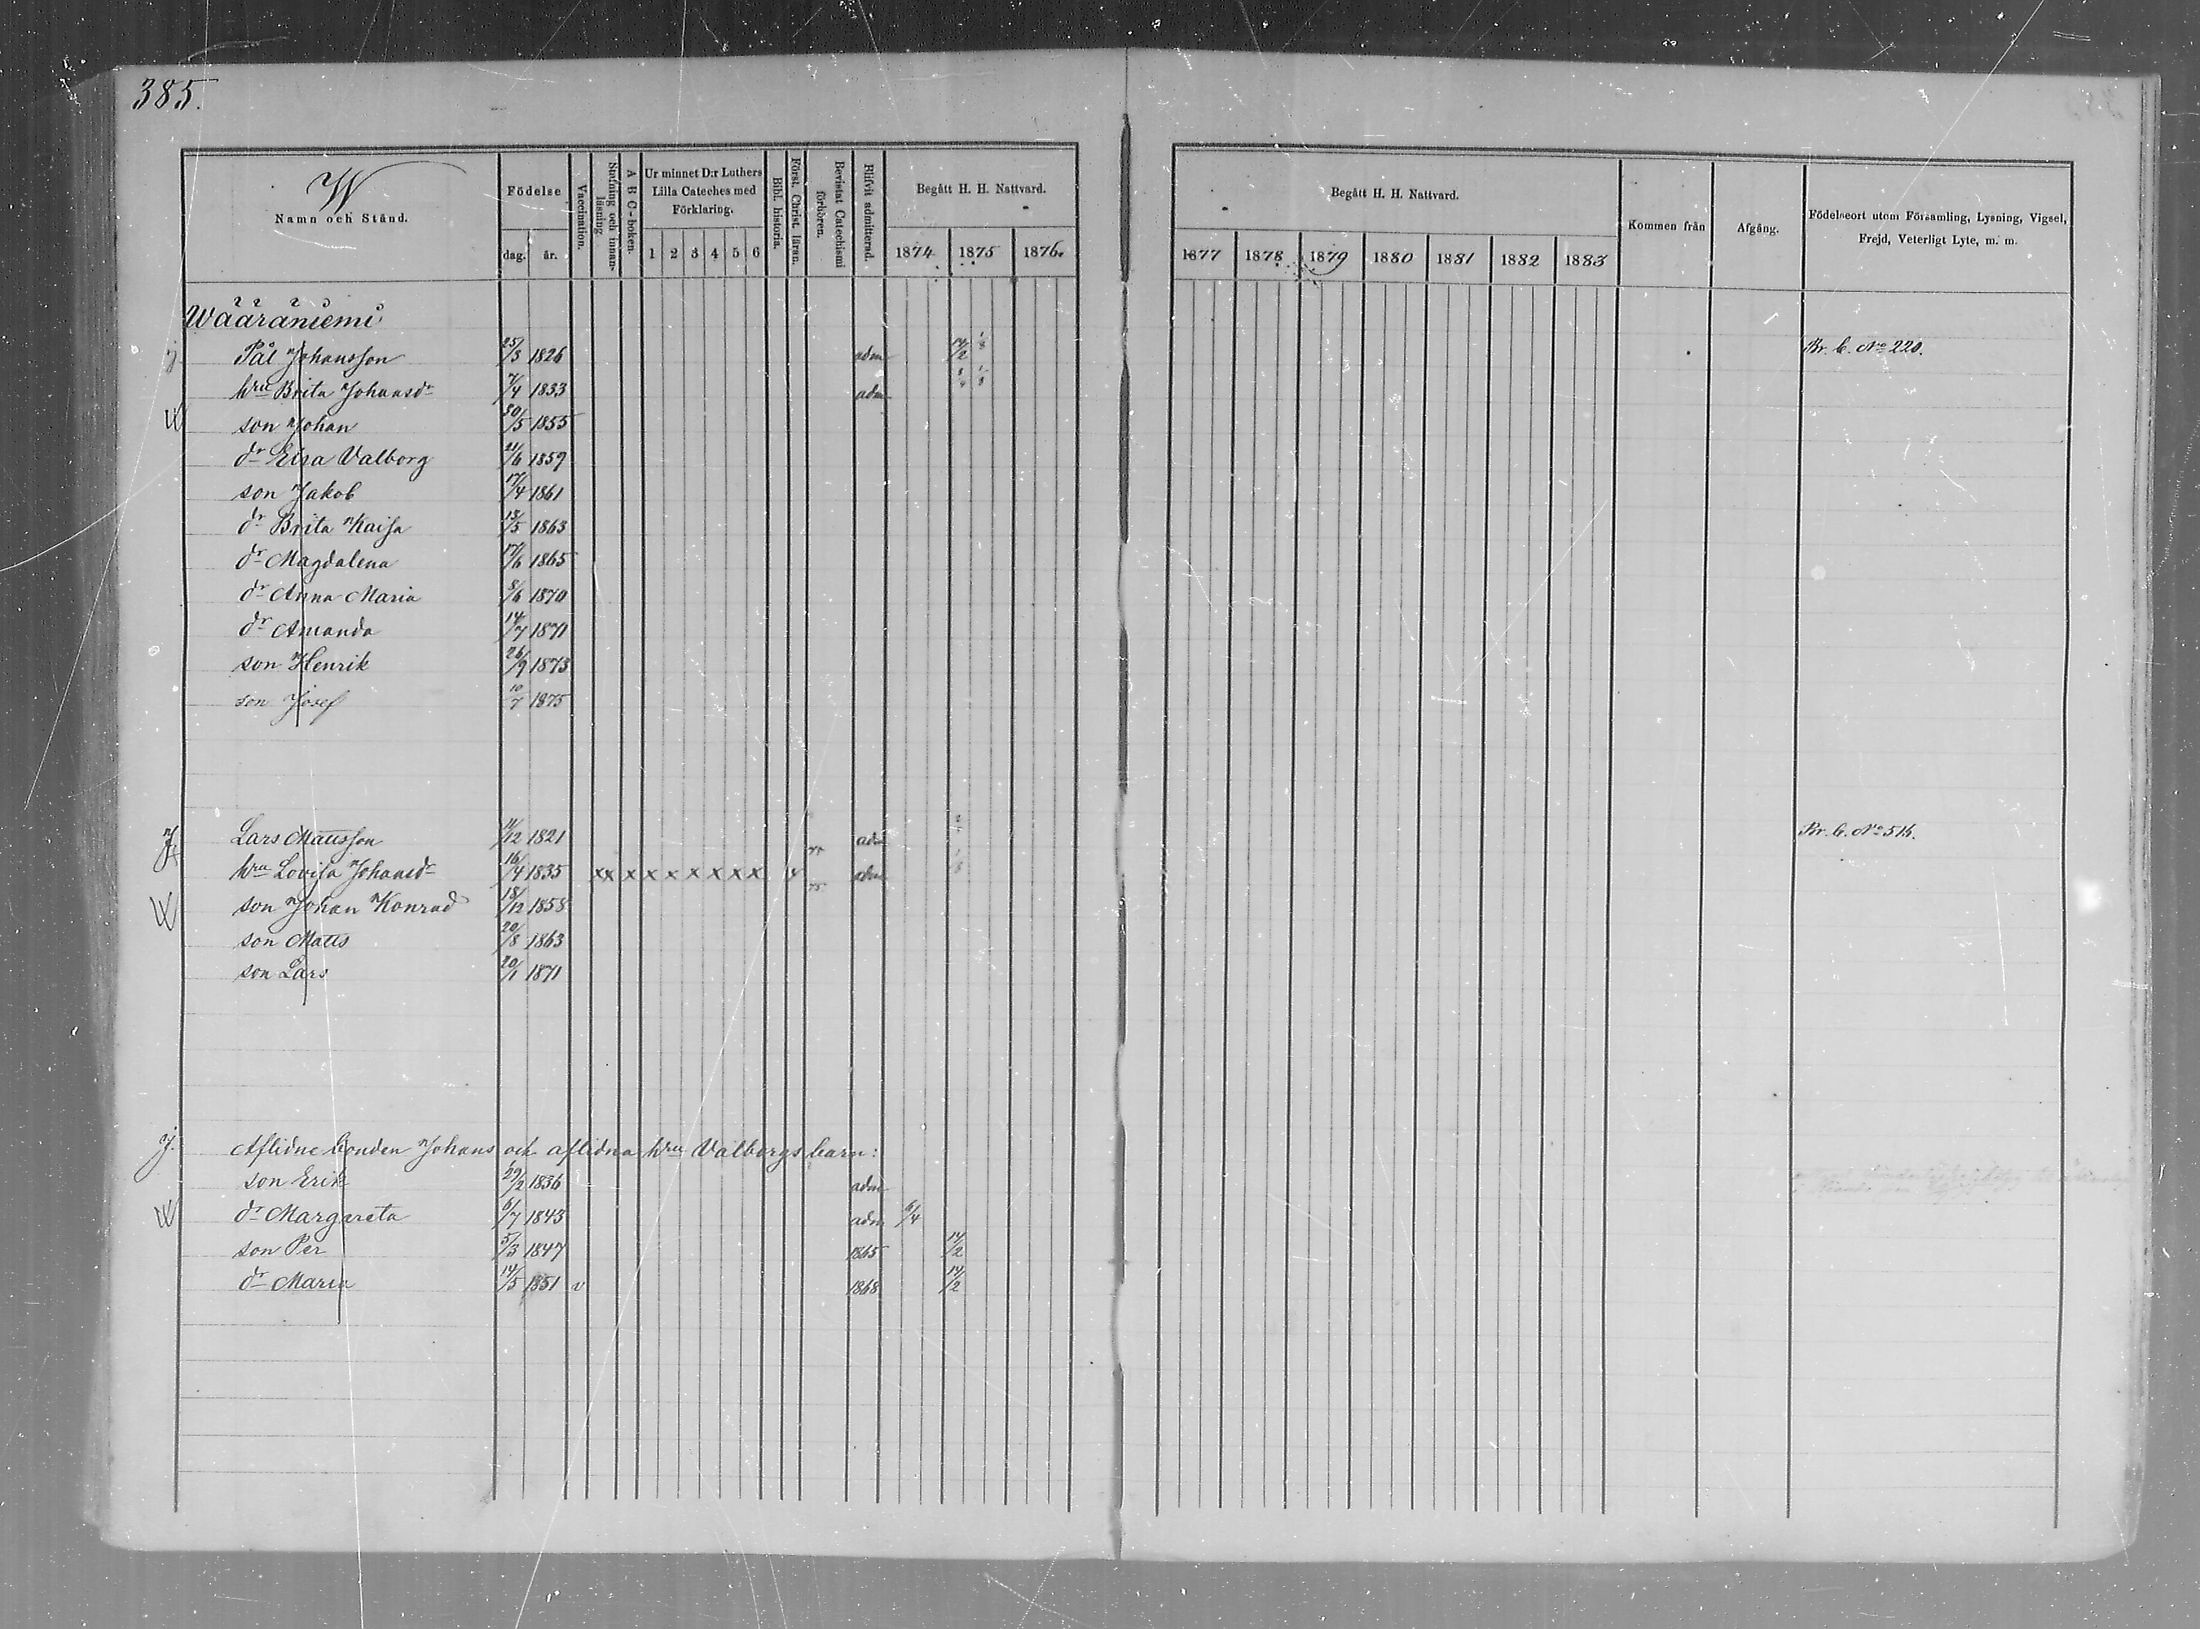 385.
W
Namn och Stånd.
Födelse
dag. år.
Vaccination.
Stafning och innanläsning.
A B C-boken.
Ur minnet D:r Luthers Lilla Cateches med Förklaring.
1 2 3 4 5 6
Bibl. historia.
Först. Christ. läran.
Bevistat Catechismi förhören.
Blifvit admitterad.
Begått H. H. Nattvard.
1874 1875 1876.
Begått H. H. Nattvard.
1877 1878 1879 1880 1881 1882 1883
Kommen från
Afgång.
Födelseort utom Församling, Lysning, Vigsel,
Frejd, Veterligt Lyte, m. m.
Wääräniemi
j. Pål Johansson 25/3 1826 adm 14/2 Br. b. No 220.
hru Brita Johansdr 7/4 1833 adm
W son Johan 30/5 1855
dr Elsa Valborg 21/6 1859
son Jakob 17/4 1861
dr Brita Kaisa 13/5 1863
dr Magdalena 17/6 1865
dr Anna Maria 8/6 1870
dr Amanda 14/7 1871
son Henrik 26/9 1873
son Josef 10/7 1875
Lars Mattsson 11/12 1821 adm Br. b. No 514.
hru Lovisa Johansdr 16/4 1835 xx x x x x x x x x adm
W son Johan Konrad 18/12 1858
son Matts 20/8 1863
son Lars 20/1 1871
j. Aflidne bonden Johans och aflidna hru Valborgs barn:
son Erik 29/2 1836 adm
W dr Margareta 6/7 1843 adm 6/4
son Per 5/3 1847 1865 14/2
dr Maria 14/5 1851 v 1868 14/2